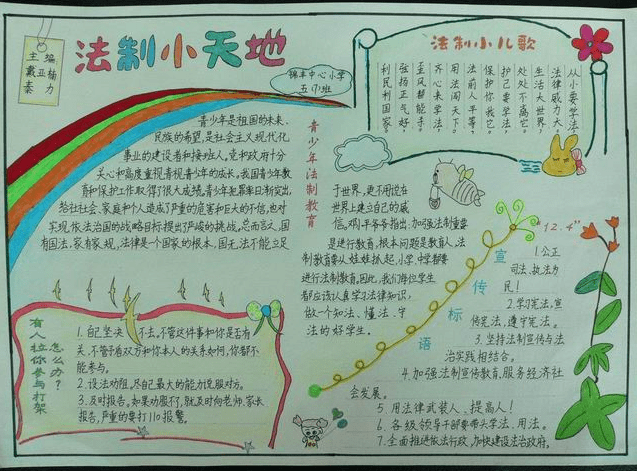 法制小天地
主编
戴亚楠
秦力
锦丰中心小学
五(1)班
法制小儿歌
从小要学法
法律威力大。
生活大世界，
处处不离它。
护己要学法，
保护你我它。
法前人平等，
用法闯天下。
齐心来学法，
歪风帮能手。
强扬正气好，
利民利国家。
青少年法制教育
青少年是祖国的未来，
民族的希望，是社会主义现代化
事业的建设者和接班人，党和政府十分
关心和高度重视青少年的成长，我国青少年教
育和保护工作取得了很大成绩，青少年犯罪率日渐突出，
给社社会、家庭和个人造成了严重的危害和巨大的不信，也对
实现依法治国的战略目标提出了严峻的挑战，总而言之，国
有国法，家有家规，法律是一个国家的根本，国无法不能立足
于世界，更不用说在
世界上建立自己的威
信，邓小平爷爷指出：加强法制重要
是进行教育，根本问题是教育人，法
制教育要从娃娃抓起，小学、中学都要
进行法制教育，因此，我们每位学生
都应该认真学习法律知识，
做一个知法、懂法、守
法的好学生。
有人拉你参与打架
怎么办？
1.自己坚决不去，不管这件事和你是否有
关，不管于有双方和你本人的关系如何，你都不
能参与。
2.设法劝阻，尽自己最大的能力说服对方。
3.及时报告。如果劝服不了，就及时向老师、家长
报告，严重的要打110报警。
“12.4”
宣传标语
1.公正
司法、执法为
民！
2.学习宪法，宣
传宪法，遵守宪法。
3.坚持法制宣传与法
治实践相结合。
4.加强法制宣传教育，服务经济社
会发展。
5.用法律武装人、提高人！
6.各级领导干部要带头学法、用法。
7.全面推进依法行政，加快建设法治政府。